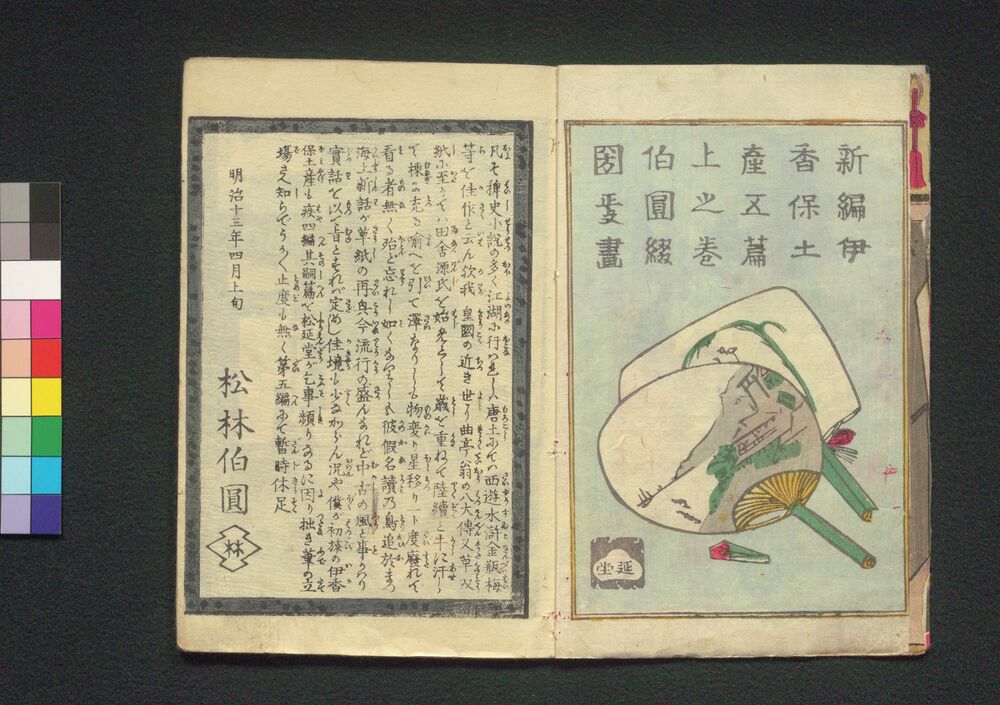 新編伊
香保土
産五篇
上之巻
伯圓綴
国政畫
延
坐
凡そ稗史小説の多く江湖に行はれし唐土にては西遊水滸金瓶梅
等を佳作と云ん歟我 皇國の近き世にハ曲亭翁の八犬傳又草双
紙に至りてハ田舎源氏を始めとして歳を重ねて陸續と牛に汗し
て棟に充る喩へを引て澤なりしも物変り星移り一ト度廃れて
看る者無く殆ど忘れし如くなりしも彼假名讀乃鳥追於まつ
海上新話が草紙の再興今流行の盛んなれど中古の風と事かハり
實話を以て旨とすれバ定めし佳境も少なからん况や僕が初編の伊香
保土産も疾四編其嗣篇を松延堂が乞事頻りなるに因り拙き筆の立
場さえ知らでうか〱止度も無く第五編にて暫時休足
明治十三年四月上旬
松林伯圓
林